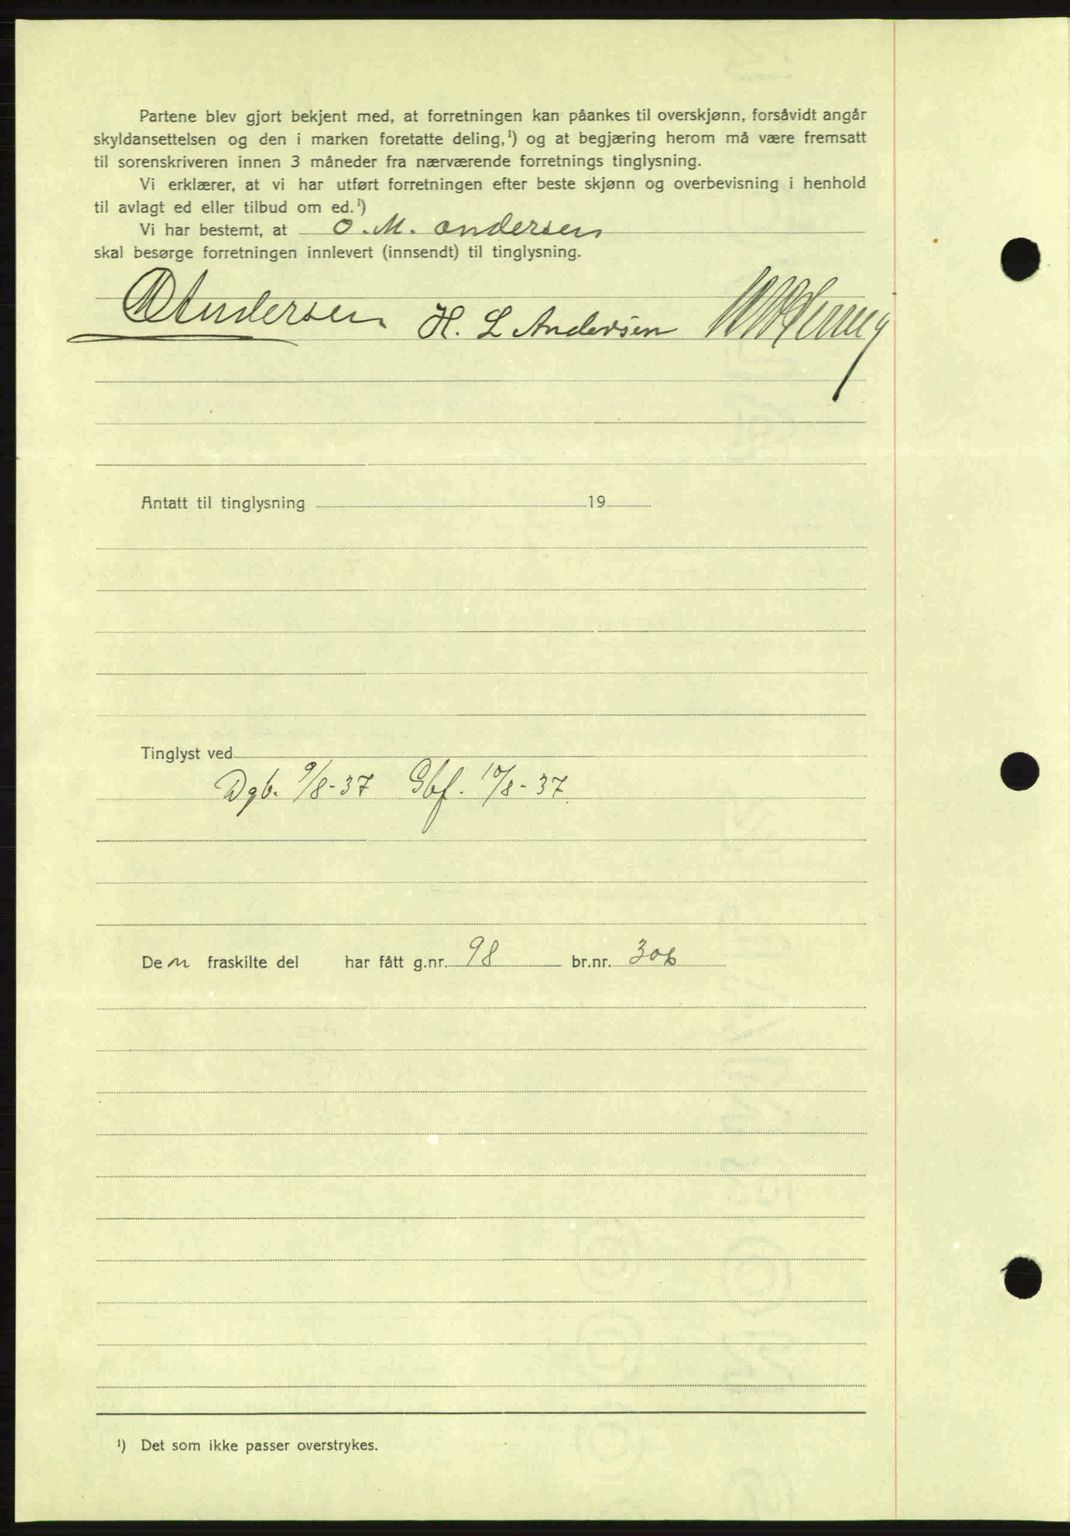 Partene blev gjort bekjent med, at forretningen kan påankes til overskjønn, forsåvidt angår
skyldansettelsen og den i marken foretatte deling,¹) og at begjæring herom må være fremsatt
til sorenskriveren innen 3 måneder fra nærværende forretnings tinglysning.
Vi erklærer, at vi har utført forretningen efter beste skjønn og overbevisning i henhold
til avlagt ed eller tilbud om ed.¹)
Vi har bestemt, at O. M. Andersen
skal besørge forretningen innlevert (innsendt) til tinglysning.
Andersen H. L Andersen
Antatt til tinglysning 19
Tinglyst ved
Dgb. 9/8-37 Gbf. 10/8-37
Den fraskilte del har fått g.nr. 98 br.nr. 306
¹) Det som ikke passer overstrykes.